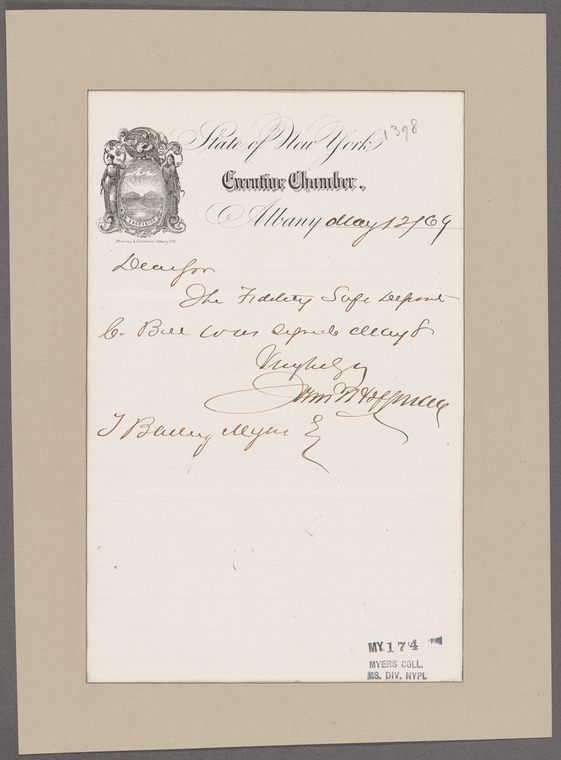 1398
State of New York
Executive Chamber.,
Albany May 12/69
EXCELSIOR
Dear Sir
The Fidelity Safe Deposit
Co Bill was signed May 8
Very truly yr
John T Hoffman
T Bailey Myers Esq
MY. 174
MYERS COLL.
MS. DIV. NYPL